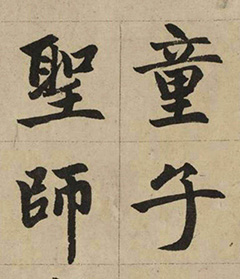 童子
聖師